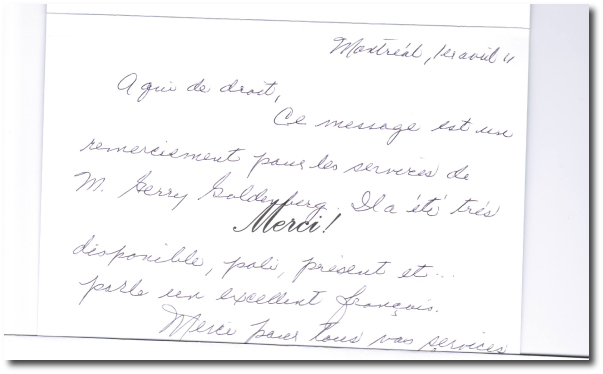 Montréal, 1er avril 11
A qui de droit,
Ce message est un
remerciement pour les services de
M. Gerry Goldenberg. Il a été très
Merci!
disponible, poli, présent et...
parle un excellent français.
Merci pour tous vos services